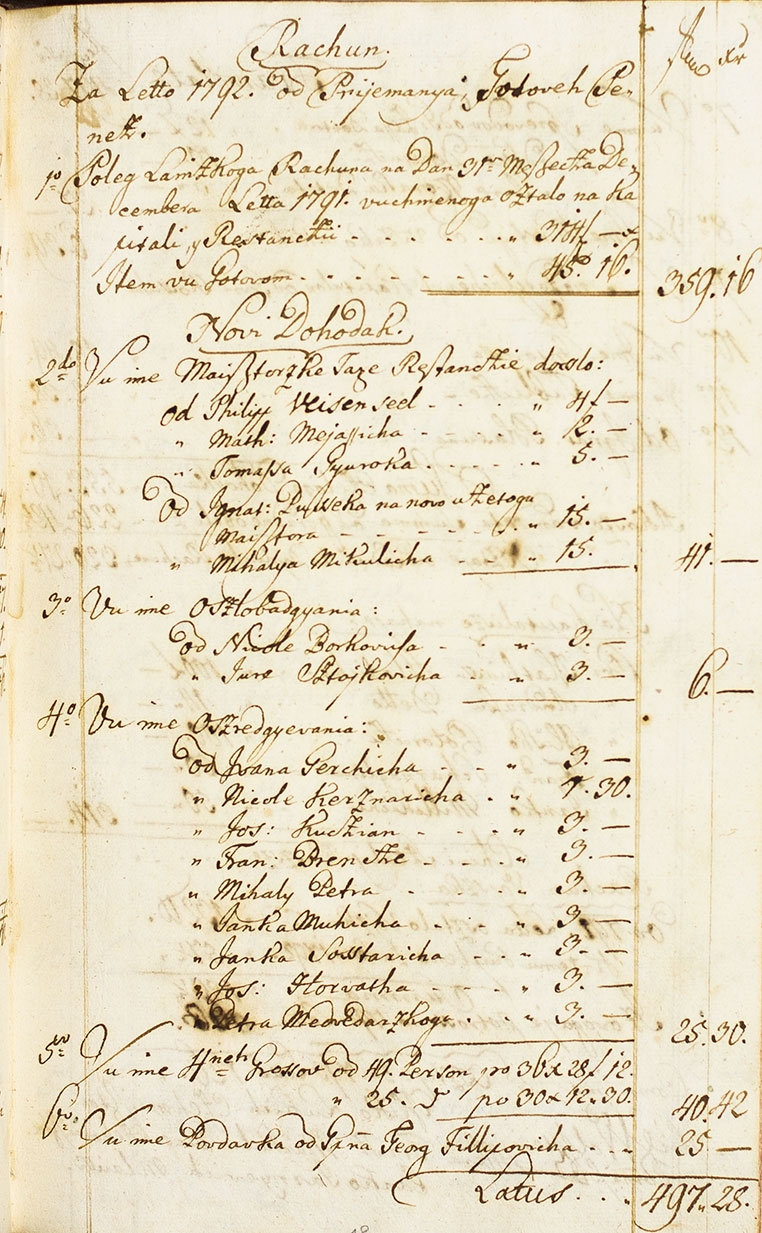 Rachun.
Za Letto 1792. od Prijemanya Gotoveh Pe-
nez.
1o Poleg Lanzkoga Rachuna na Dan 31n Meszecza De-
cembera Letta 1791. vuchinenoga Osztalo na Ka
pitali, y Restanczii - - - " 314f — x
Item vu Gotovom - - - " 45. 16. 359. 16
Novi Dohodak.
2do Vu ime Maisztorzke Taxe Restanczie dosslo:
od Philipp Weisenseel - - - " 4f —
" Math: Mejassicha - - - " 2. —
" Tomassa Gyuroka - - - " 5. —
od Ignat: Pusseka na novo uzetoga
Maisztora - - - " 15. —
" Mihalya Mikulicha - - " 15. 41. —
3o Vu ime Oszlobadgyania:
od Nicole Borkovicsa - - " 3. —
" Jure Sztojkovicha - - " 3. — 6. —
4o Vu ime Oszredgyevania:
od Ivana Gerchicha - - " 3. —
" Nicole Kerznaricha - " 1. 30.
" Jos: Kuczian - - - " 3. —
" Fran: Drencze - - - " 3. —
" Mihaly Petra - - - " 3. —
" Janka Muhicha - - " 3 —
" Janka Sosstaricha - - " 3. —
" Jos: Horvatha - - - " 3. —
" Petra Medvedarzkoga - - " 3. — 25. 30.
5to Vu ime 4neh Grossov od 49. Person po 36x 28f 12.
" 25. po 30x 12. 30. 40. 42
6to Vu ime Povdavka od Georg Fillipovicha - - " 25 —
Latus - - " 497. 28.